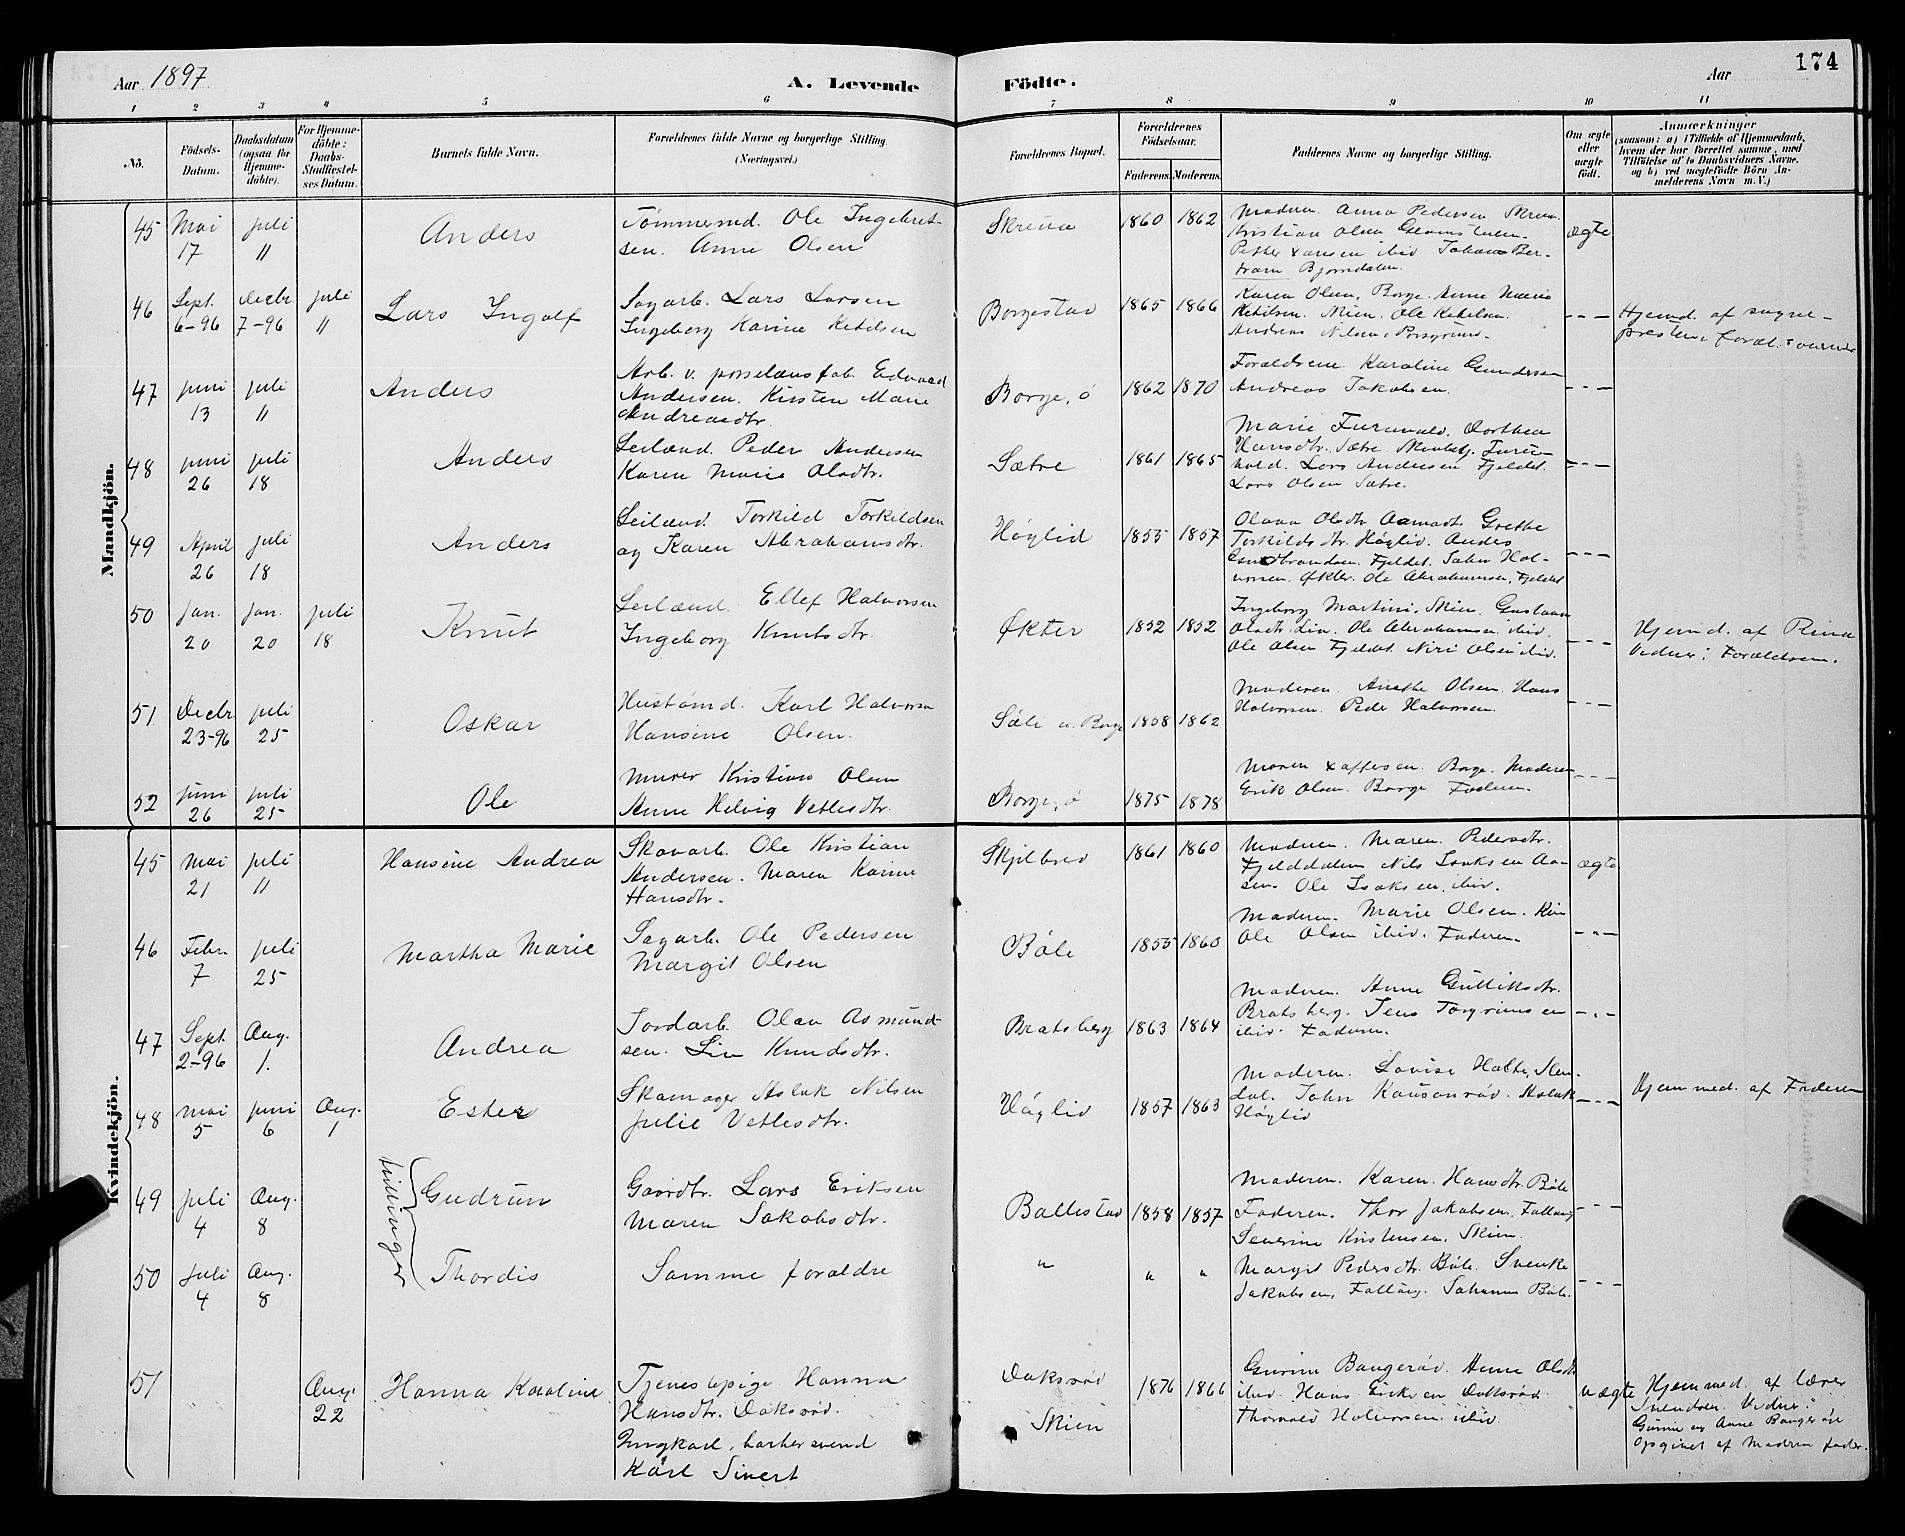 174
Aar 1897
A. Levende Födte.
Aar
1 2 3 4 5 6 7 8 9 10 11
No.
Födsels-Datum.
Daabsdatum (ogsaa for Hjemme-döbte).
For Hjemme-döbte: Daabs-Stadfæstel-ses Datum.
Barnets fulde Navn.
Forældrenes fulde Navne og borgerlige Stilling (Næringsvei.)
Forældrenes Bopæl.
Forældrenes Födselsaar.
Faderens. Moderens.
Faddernes Navne og borgerlige Stilling.
Om ægte eller uægte födt.
Anmærkninger
(saasom: a) i Tilfælde af Hjemmedaab,
hvem der har forrettet samme, med
Tilföielse af to Daabsvidners Navne.
og b) ved uægtefödte Börn An-
melderens Navn m. V.)
Mandkjön.
45 Mai 17 juli 11
Anders
Tömmermd. Ole Ingebret-
sen. Anne Olsen
1860 1862
Moderen. Anna Pedersen
Kristian Olsen
ibid Johan Ber-
tram Bjorndalen.
ægte
46 Sept. 6-96 Decbr 7-96 juli 11
Lars Ingolf
Sagarb. Lars Larsen
Ingeborg Karine Ketilsen
Borgestad
1865 1866
Karen Olsen, Borge. Anne Marie
Ketilsen. Skien. Ole Ketilsen.
Andreas Nilsen, Porsgrund.
- - -
Hjemd. af sogne-
presten.
47 juni 13 juli 11
Anders
Arb. v. porselænsfab. Edvard
Andersen. Kirsten Marie
Andreasdtr.
Borge, ö
1862 1870
Forældrene Karoline Gundersen
Andreas Jakobsen.
- - -
48 juni 26 juli 18
Anders
Leilænd. Peder Andersen
Karen Marie Olsdtr.
Sætre
1861 1865
Marie Furuvald. Dorthea
Hansdtr. Sætre.
Lars Andersen Fjeldet.
Lars Olsen Sætre.
- - -
49 April 26 juli 18
Anders
Leilænd. Torkild Torkildsen
og Karen Abrahamsdtr.
Höglid
1855 1857
Olava Olsdtr Grethe
Torkildsdtr. Höglid. Andes
Fjeldet. John Hal-
vorsen. Økter. Ole Abrahamsen, Fjeldet
- - -
50 Jan. 20 Jan. 20 juli 18
Knut
Leilænd. Ellef Halvorsen
Ingeborg Knutsdtr.
Økter
1852 1852
Ingeborg Martins. Skien.
Olsdtr. Lia. Ole Abrahamsen ibid.
Ole Olsen Fjeldet. Olsen ibid.
- - -
Hjemd. af
Vidner: Forældrene.
51 Decbr 23-96 juli 25
Oskar
Hustömd. Karl Halvorsen
Hansine Olsen.
1858 1862
Moderen. Olsen. Hans
Halvorsen. Peder Halvorsen.
- - -
52 juni 26 juli 25
Ole
Murer Kristian Olsen
Anne Helvig Vetlesdtr.
Borge, ö
1875 1878
Maren Borge. Moderen
Erik Olsen. Borge Faderen.
- - -
Kvindekjön.
45 Mai 21 juli 11
Hansine Andrea
Skovarb. Ole Kristian
Andersen. Maren Karine
Hansdtr.
Skjilbred
1861 1860
Moderen. Maren Pedersdtr.
Fjelddalen Nils Isaksen Aa-
sen. Ole Isaksen, ibid.
ægte
46 Febr. 7 juli 25
Martha Marie
Sagarb. Ole Pedersen
Margit Olsen
Böle
1855 1860
Moderen. Marie Olsen.
Ole Olsen ibid. Faderen.
- " -
47 Sept. 2-96 Aug. 1.
Andrea
Jordarb. Olav Asmund-
sen. Liv Knudsdtr.
Bratsberg
1863 1864
Moderen. Anne Gulliksdtr.
Bratsberg. Jens Torgrimsen
ibid. Faderen.
- " -
48 Mai 5 juni 6 Aug. 1
Ester
Skomager Aslak Nilsen
Julie Vetlesdtr.
Höglid
1857 1863
Moderen. Lovise Holte,
John Aslak
Höglid
- - -
Hjemmed. af Faderen
tvillinger
49 Juli 4 Aug. 8
Gudrun
Gaardbr. Lars Eriksen
Maren Jakobsdtr.
Ballestad
1858 1857
Moderen. Karen. Hansdtr. Böle
Faderen. Thor Jakobsen.
Severine Kristensen, Skien.
- - -
50 juli 4 Aug. 8
Thordis
Samme forældre
" " "
Margit Pedersdtr. Böle.
Jakobsen, Johannes Böle.
- - -
51 Aug. 22
Hanna Karoline
Tjenestepige Hanna
Hansdtr. Daksröd.
Ungkarl, barbersvend
Karl Sivert
Daksröd
Skien
1876 1866
Gurine Bangeröd. Anne Olsdtr.
ibid. Hans Eriksen Daksröd.
Thorvald Halvorsen ibid.
uægte
Hjemmed. af lærer
Svendsen. Vidner:
Gurine og Anne Bangeröd
Opgivet af Moderens fader.